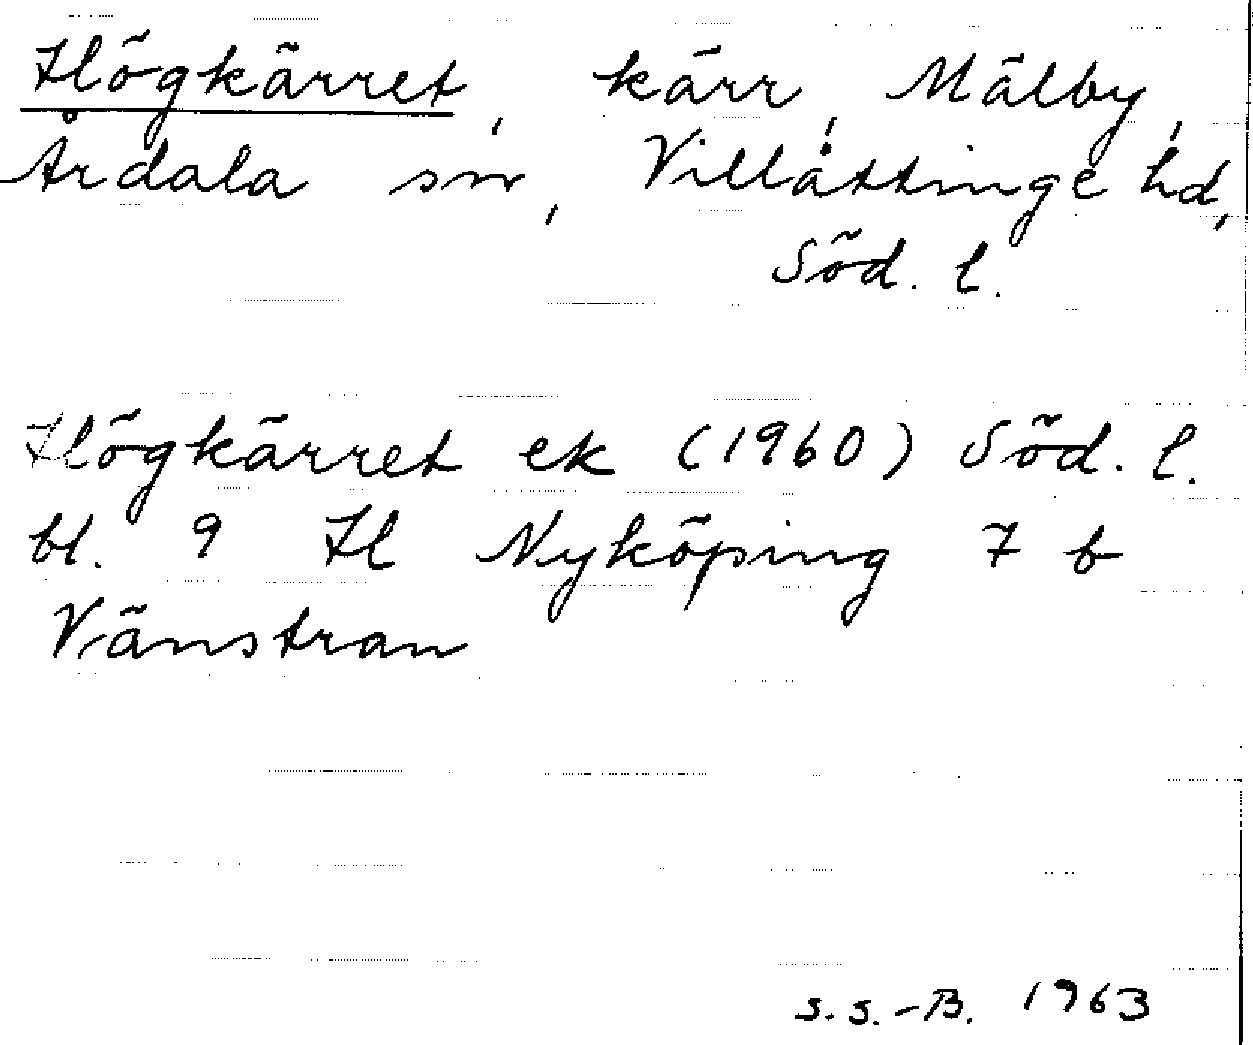 Högkärret, kärr, Mälby,
Årdala sn, Villåttinge hd,
Söd. l.
Högkärret ek (1960) Söd. l.
bl. 9 H Nyköping 7 b
Vänstran
S.S.-B. 1963